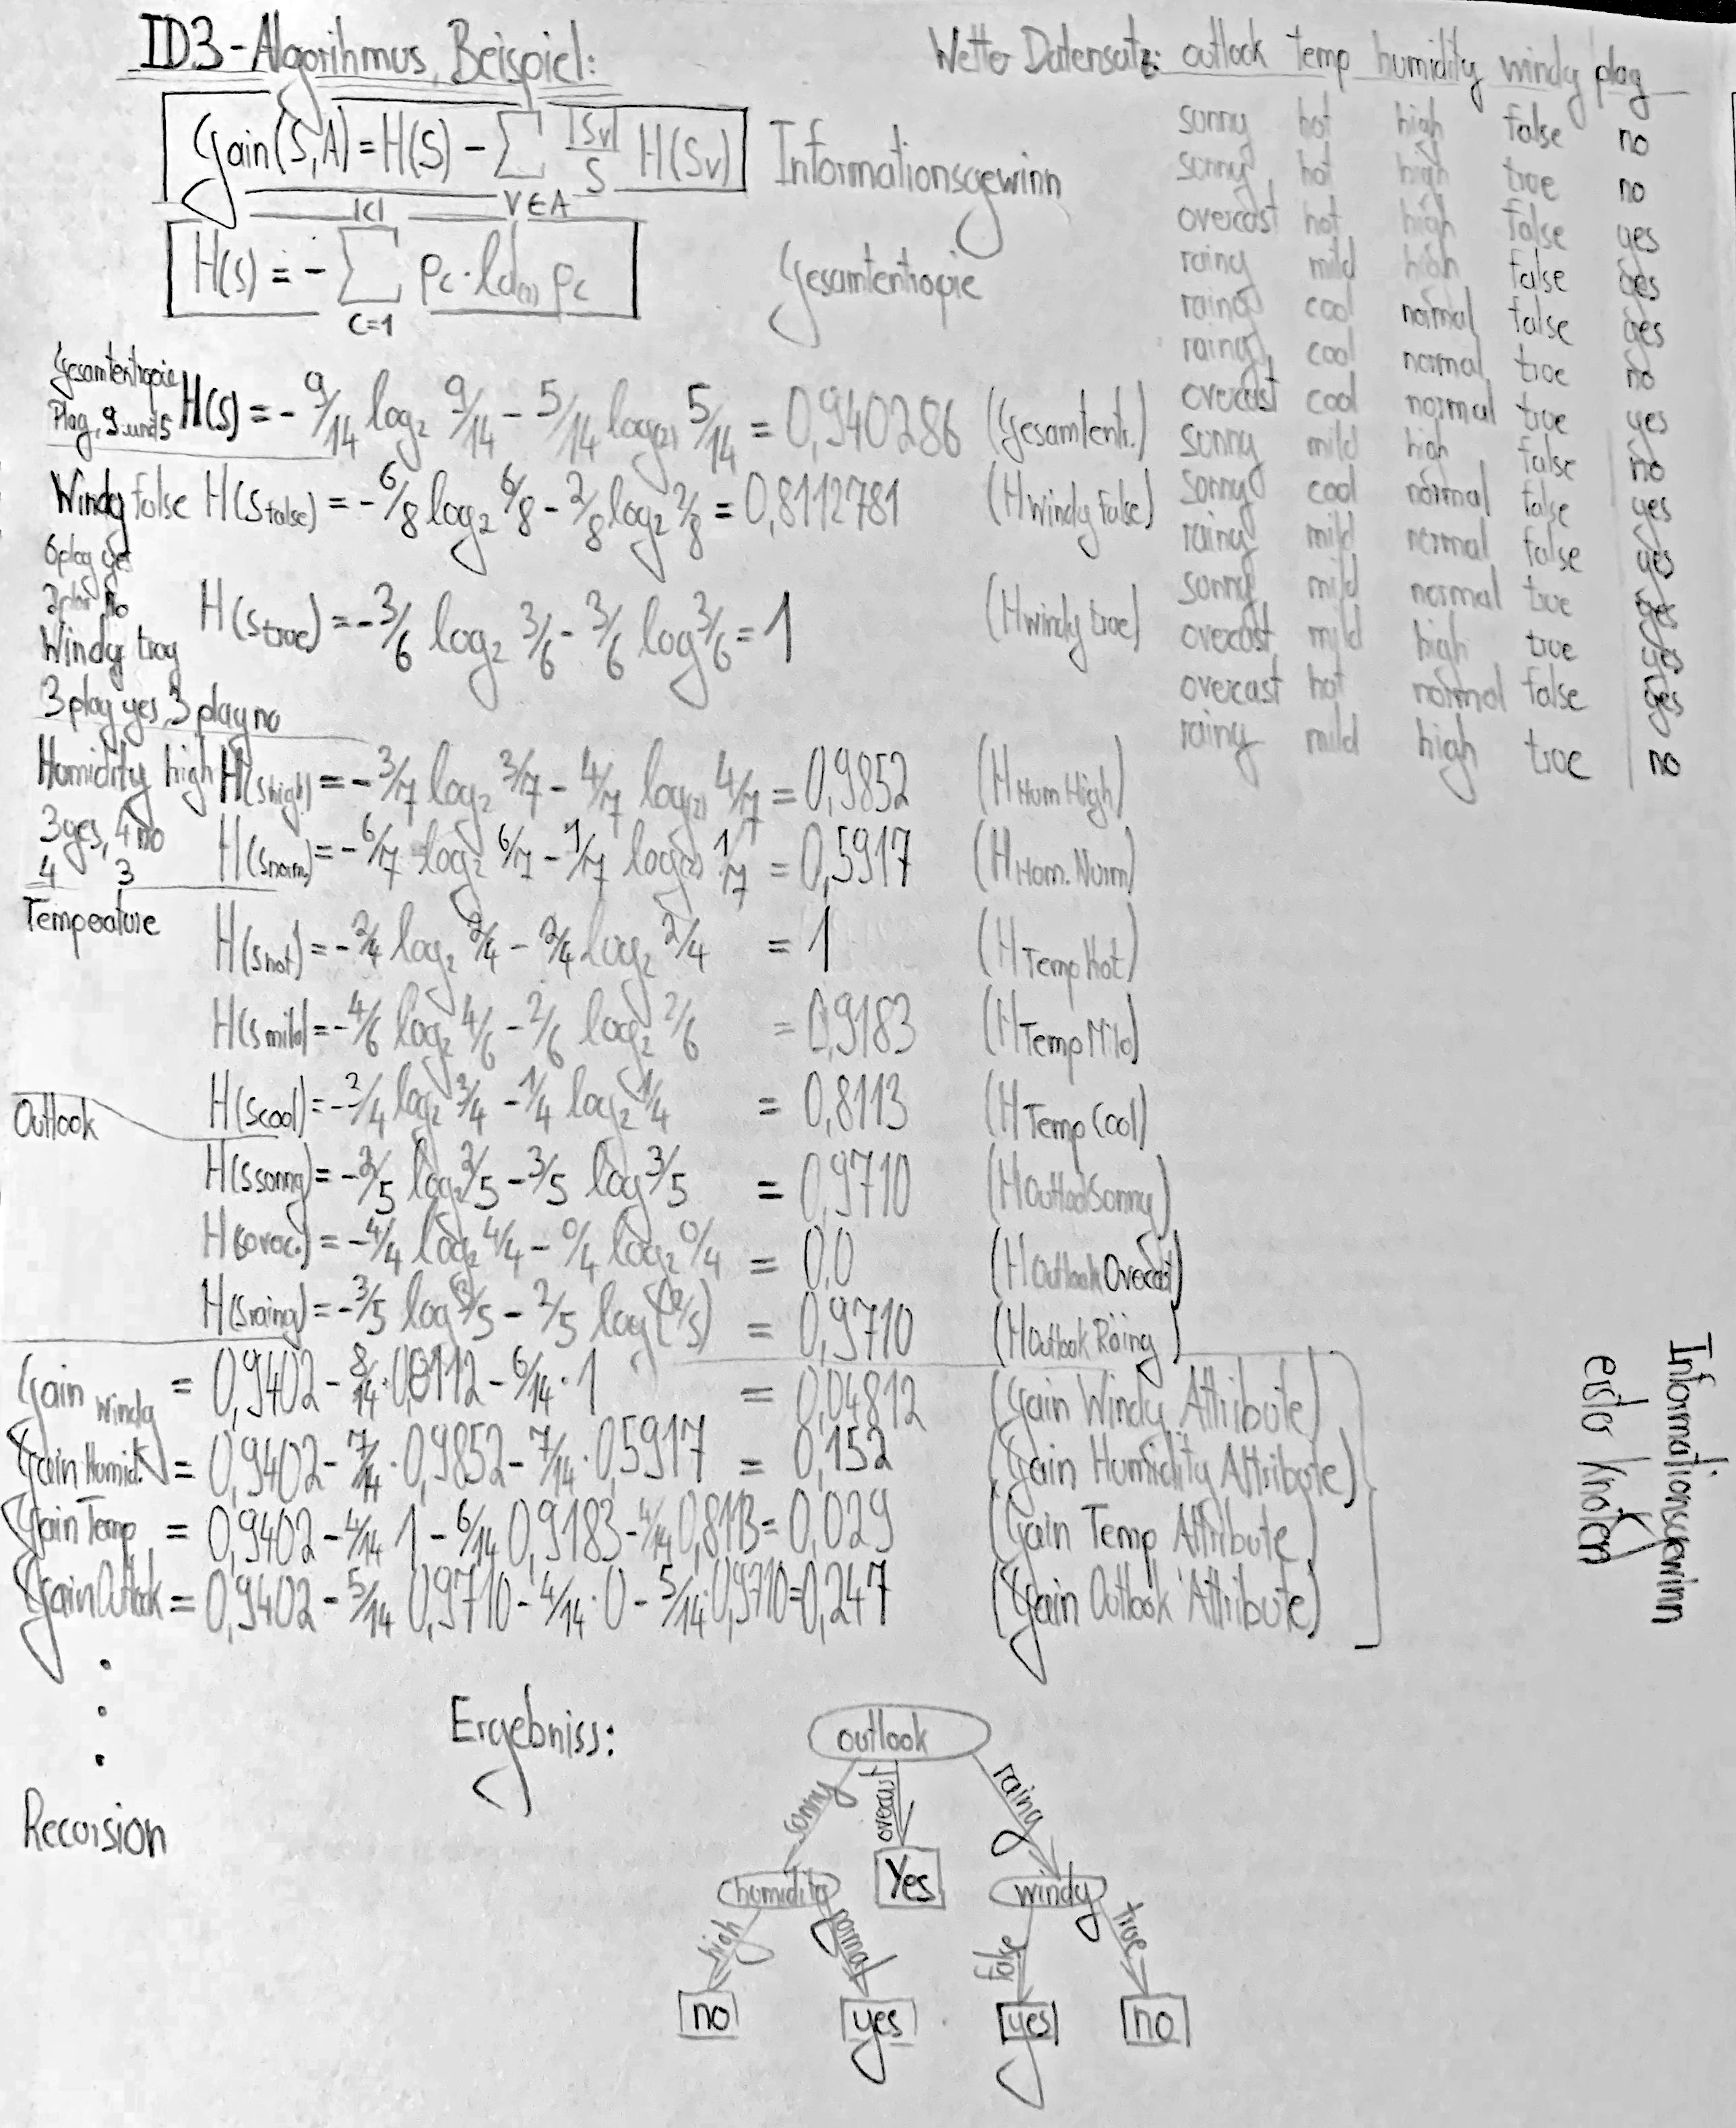 ID3-Algorithmus, Beispiel:
Gain(S,A) = H(S) - ∑ |Sv|/S H(Sv) Informationsgewinn
V∈A
|C|
H(S) = - ∑ pc · ld(2) pc Gesamtentropie
C=1
Wetter Datensatz: outlook temp humidity windy play
sunny hot high false no
sunny hot high true no
overcast hot high false yes
rainy mild high false yes
rainy cool normal false yes
rainy cool normal true no
overcast cool normal true yes
sunny mild high false no
sunny cool normal false yes
rainy mild normal false yes
sunny mild normal true yes
overcast mild high true yes
overcast hot normal false yes
rainy mild high true no
Gesamtentropie
Play, 9 und 5 H(S) = - 9/14 log2 9/14 - 5/14 log(2) 5/14 = 0,940286 (Gesamtentr.)
Windy false H(Sfalse) = - 6/8 log2 6/8 - 2/8 log2 2/8 = 0,8112781 (H Windy False)
6 play yes
2 play no
H(Strue) = - 3/6 log2 3/6 - 3/6 log 3/6 = 1 (H windy true)
Windy tray
3 play yes, 3 play no
Humidity high H(Shigh) = - 3/7 log2 3/7 - 4/7 log(2) 4/7 = 0,9852 (H Hum High)
3 yes, 4 no
H(Snorm) = - 6/7 log2 6/7 - 1/7 log(2) 1/7 = 0,5917 (H Hom. Norm)
4 3
Temperature
H(Shot) = - 2/4 log2 2/4 - 2/4 log2 2/4 = 1 (H Temp hot)
H(Smild) = - 4/6 log2 4/6 - 2/6 log2 2/6 = 0,9183 (H Temp Mild)
H(Scool) = - 3/4 log2 3/4 - 1/4 log2 1/4 = 0,8113 (H Temp Cool)
Outlook
H(Ssonny) = - 2/5 log2 2/5 - 3/5 log 3/5 = 0,9710 (H Outlook Sonny)
H(Sovrc.) = - 4/4 log2 4/4 - 0/4 log2 0/4 = 0,0 (H Outlook Overcast)
H(Srainy) = - 3/5 log 3/5 - 2/5 log(2/5) = 0,9710 (H Outlook Rainy)
Gain Windy = 0,9402 - 8/14 · 0,8112 - 6/14 · 1 = 0,04812 (Gain Windy Attribute)
Gain Humid. = 0,9402 - 7/14 · 0,9852 - 7/14 · 0,5917 = 0,152 (Gain Humidity Attribute)
Gain Temp = 0,9402 - 4/14 1 - 6/14 0,9183 - 4/14 0,8113 = 0,029 (Gain Temp Attribute)
Gain Outlook = 0,9402 - 5/14 0,9710 - 4/14 · 0 - 5/14 · 0,9710 = 0,247 (Gain Outlook Attribute)
Informationsgewinn
erster Knoten
Recursion
Ergebniss:
outlook
sonny overcast rainy
humidity Yes windy
high normal false true
no yes yes no